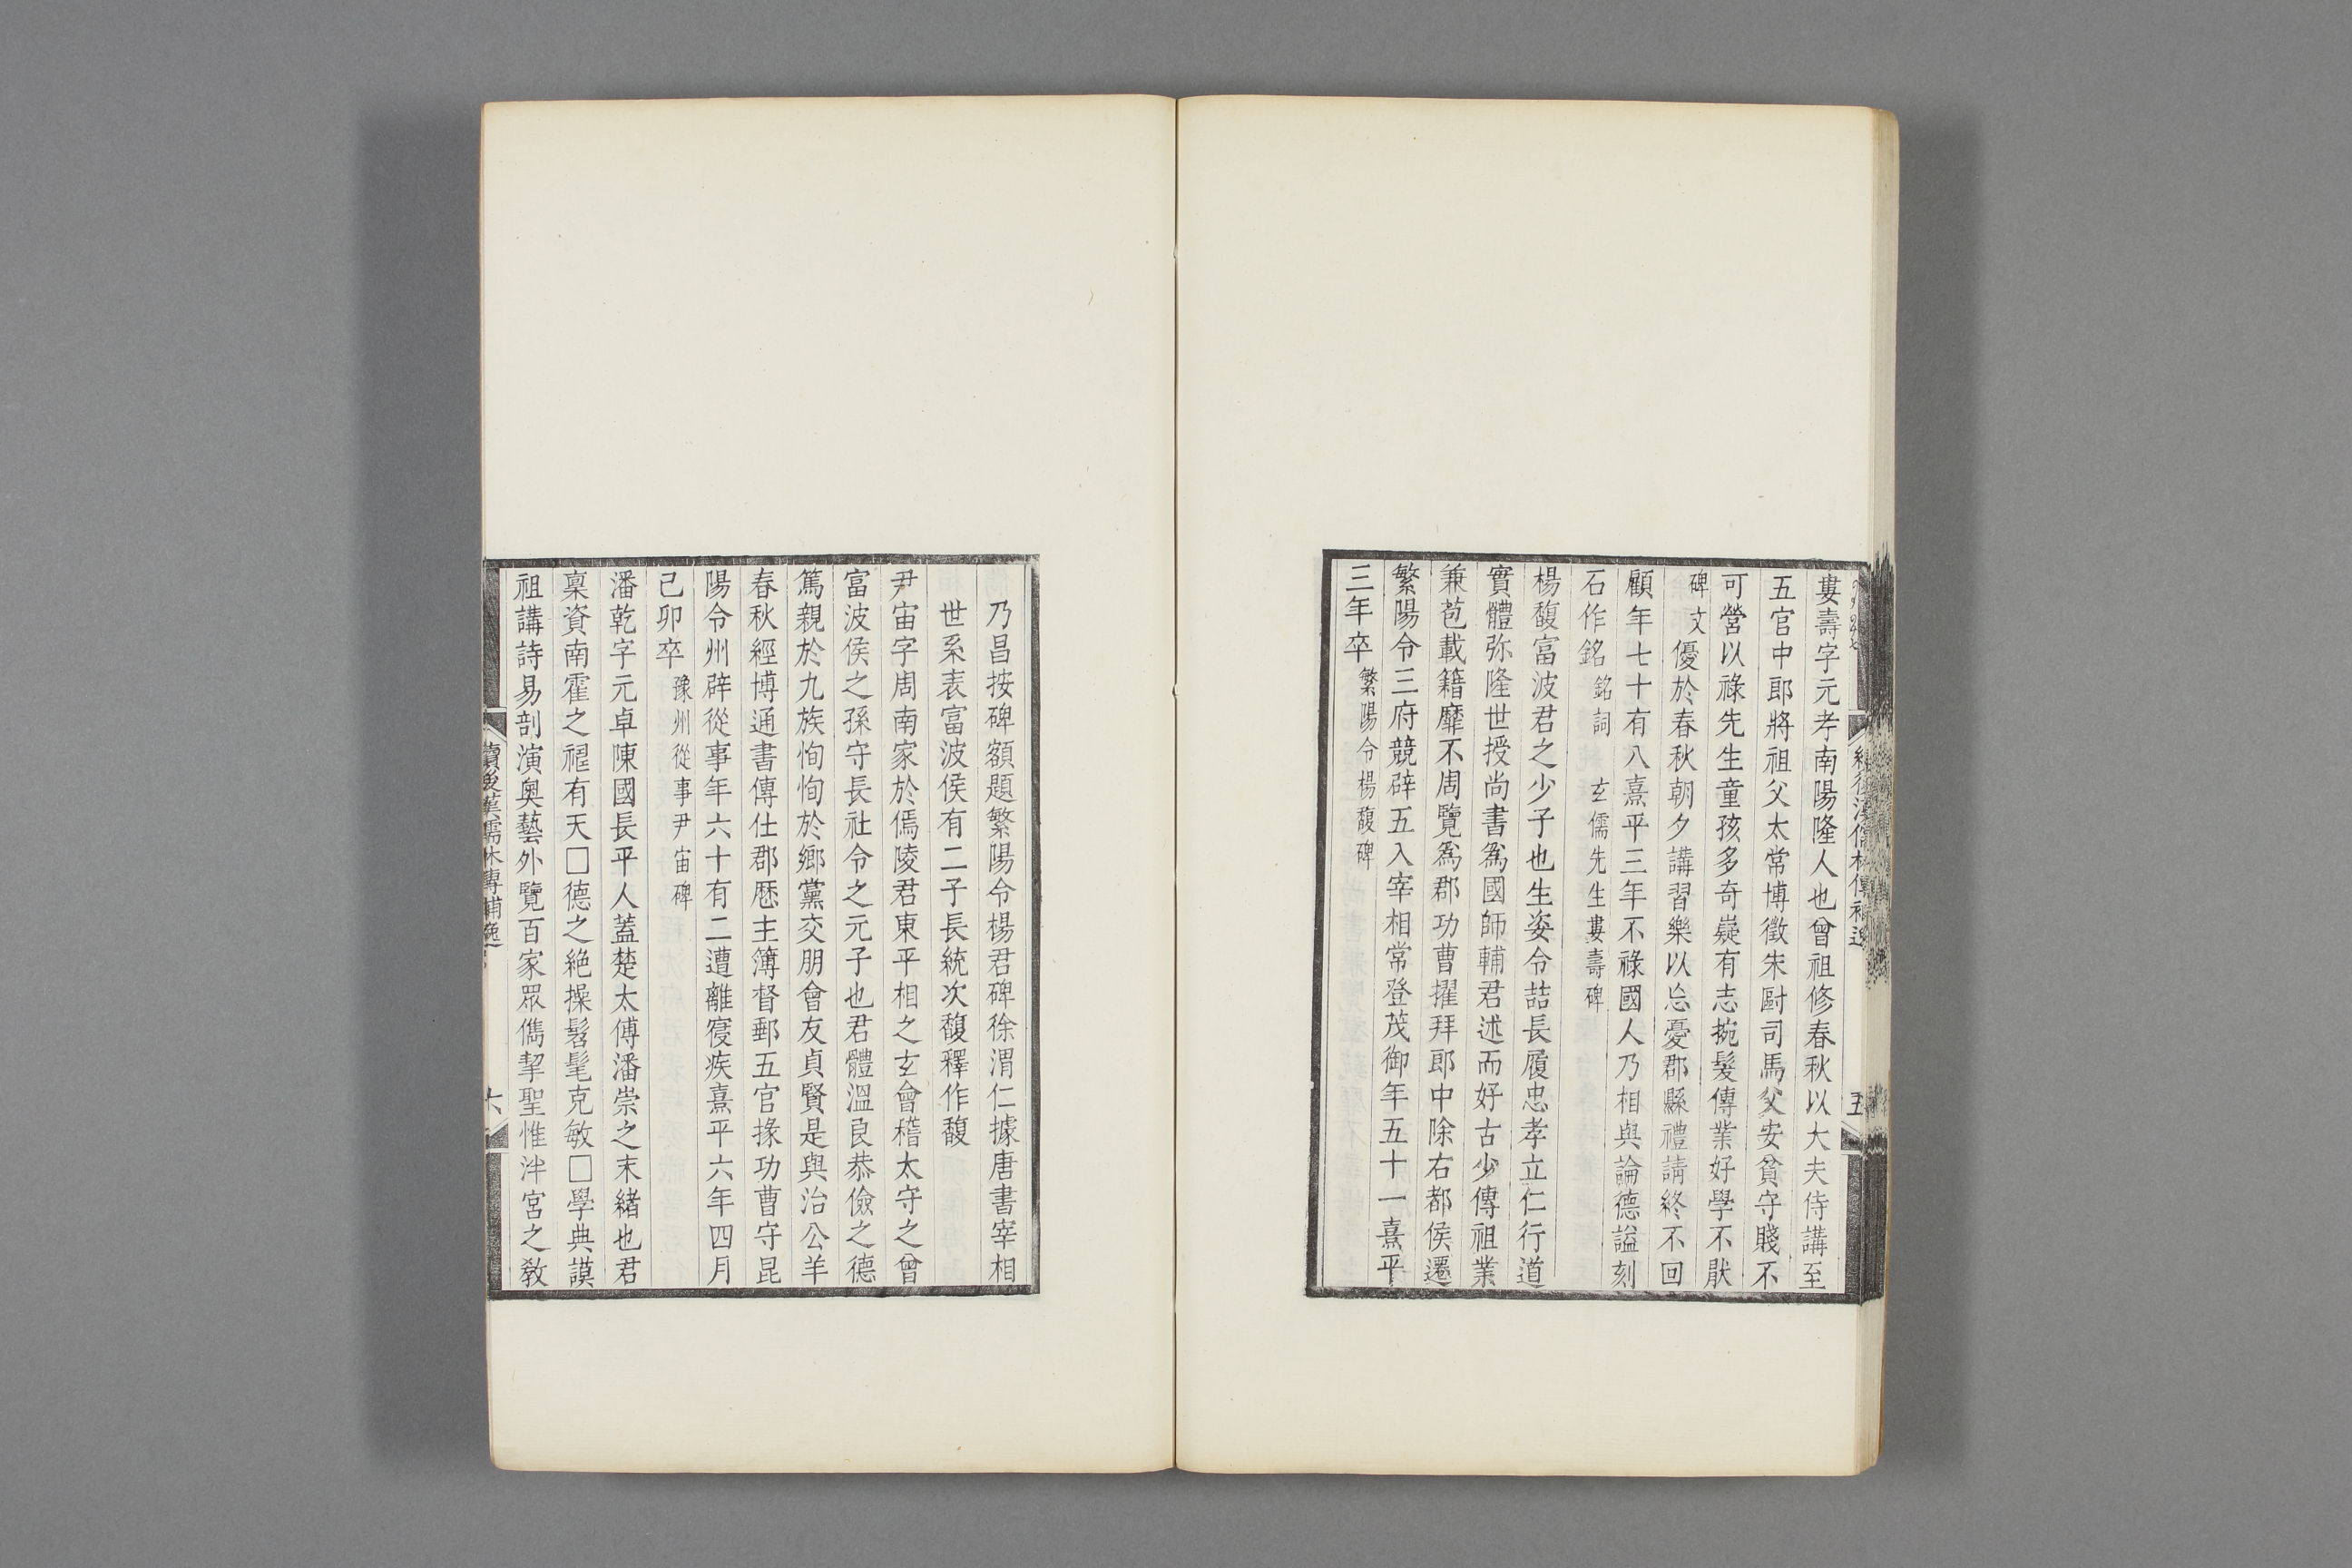 婁壽字元孝南陽隆人也曾祖修春秋以大夫侍講至
五官中郎將祖父太常博徵朱𠪨司馬父安貧守賤不
可營以祿先生童孩多奇嶷有志捥髮傳業好學不猒
碑文優於春秋朝夕講習樂以忘憂郡縣禮請終不回
顧年七十有八熹平三年不祿國人乃相與論德諡刻
石作銘銘詞 玄儒先生婁壽碑
楊馥富波君之少子也生姿令喆長履忠孝立仁行道
實體弥隆世授尚書爲國師輔君述而好古少傳祖業
兼苞載籍靡不周覽爲郡功曹擢拜郎中除右都侯遷
繁陽令三府競辟五入宰相常登茂御年五十一熹平
三年卒繁陽令楊馥碑
續後漢儒林傳補逸
五
乃昌按碑額題繁陽令楊君碑徐渭仁據唐書宰相
世系表富波侯有二子長統次馥釋作馥
尹宙字周南家於傿陵君東平相之玄會稽太守之曾
富波侯之孫守長社令之元子也君體溫良恭儉之德
篤親於九族恂恂於鄉黨交朋會友貞賢是與治公羊
春秋經博通書傳仕郡歷主簿督郵五官掾功曹守昆
陽令州辟從事年六十有二遭離寑疾熹平六年四月
己卯卒豫州從事尹宙碑
潘乾字元卓陳國長平人蓋楚太傅潘崇之末緒也君
稟資南霍之神有天□德之絶操髫髦克敏□學典謨
祖講詩易剖演奧藝外覽百家眾儁挈聖惟泮宮之敎
續後漢儒林傳補逸
六